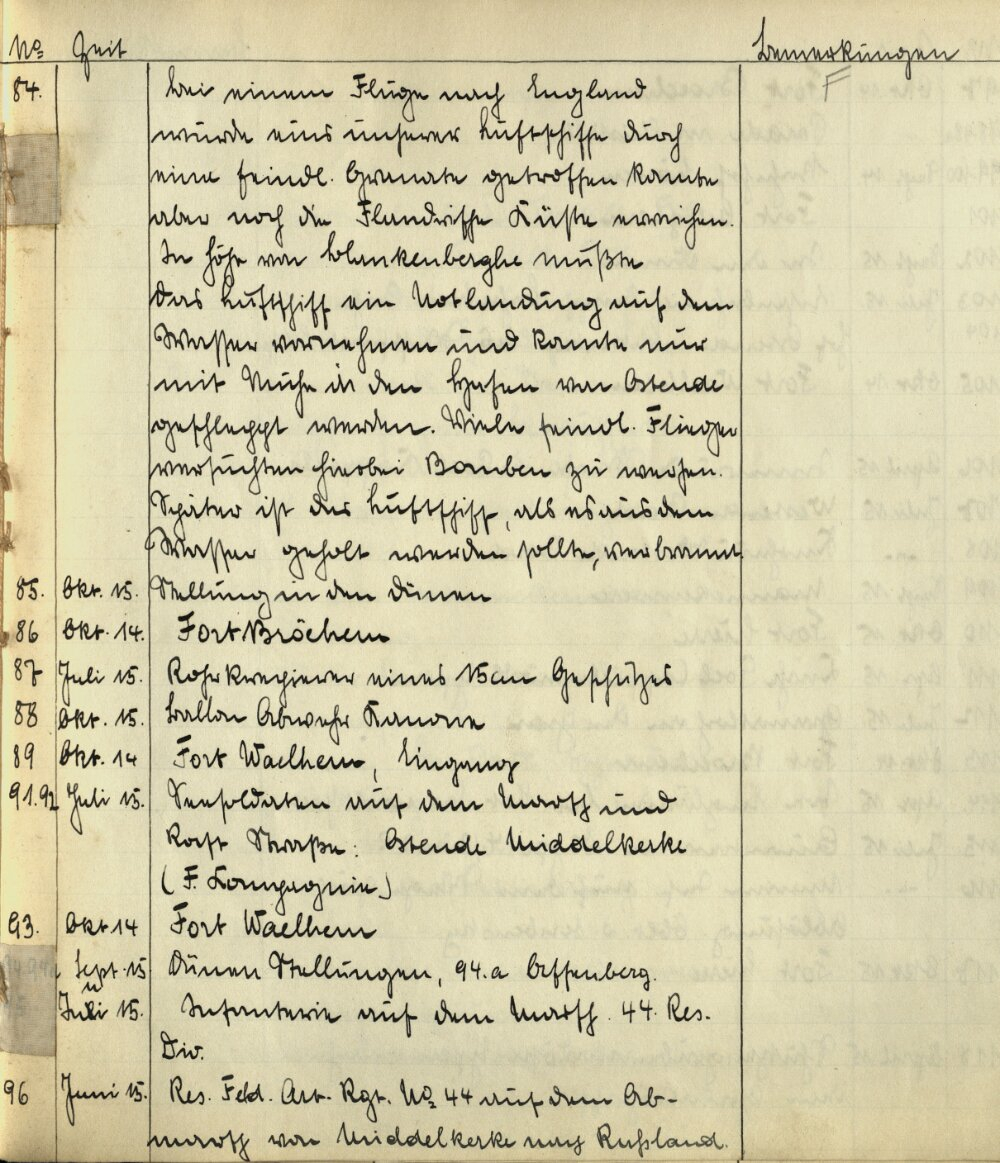 No Zeit Bemerkungen
84. Bei einem Fluge nach England
wurde eins unserer Luftschiffe durch
eine feindl. Granate getroffen konnte
aber noch die Flandrische Küste erreichen.
In Höhe von Blankenberghe mußte
das Luftschiff ein Notlandung auf dem
Wasser vornehmen und konnte nur
mit Mühe in den Hafen von Ostende
geschleppt werden. Viele feindl. Flieger
versuchten hierbei Bomben zu werfen.
Später ist das Luftschiff, als es aus dem
Wasser geholt werden sollte, verbrannt
85. Okt. 15. Stellung in den Dünen
86 Okt. 14. Fort Bröchem
87 Juli 15. Rohrkrepierer eines 15cm Geschützes
88 Okt. 15. Ballon Abwehr Kanone
89 Okt. 14 Fort Waelhem, Eingang
91.92 Juli 15. Seesoldaten auf dem Marsch und
Rast Straße: Ostende Middelkerke
(F. Kompagnie)
93. Okt 14 Fort Waelhem
Sept. 15 Dünen Stellungen, 94.a
u
Juli 15. Infanterie auf dem Marsch. 44. Res.
Div.
96 Juni 15. Res. Feld. Art. Rgt. No 44 auf dem Ab-
marsch von Middelkerke nach Russland.